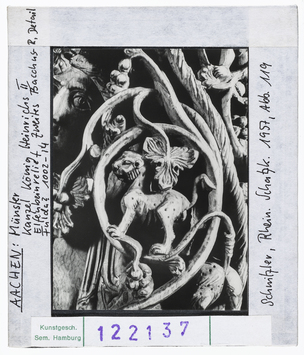 AACHEN: Münster
Kanzel König Heinrichs II
Elfenbeinrelief zweites Bacchus-R, Detail
Fulda? 1002-14
Schnitzler, Rhein. Schatzk. 1957, Abb. 119
Kunstgesch.
Sem. Hamburg
122137